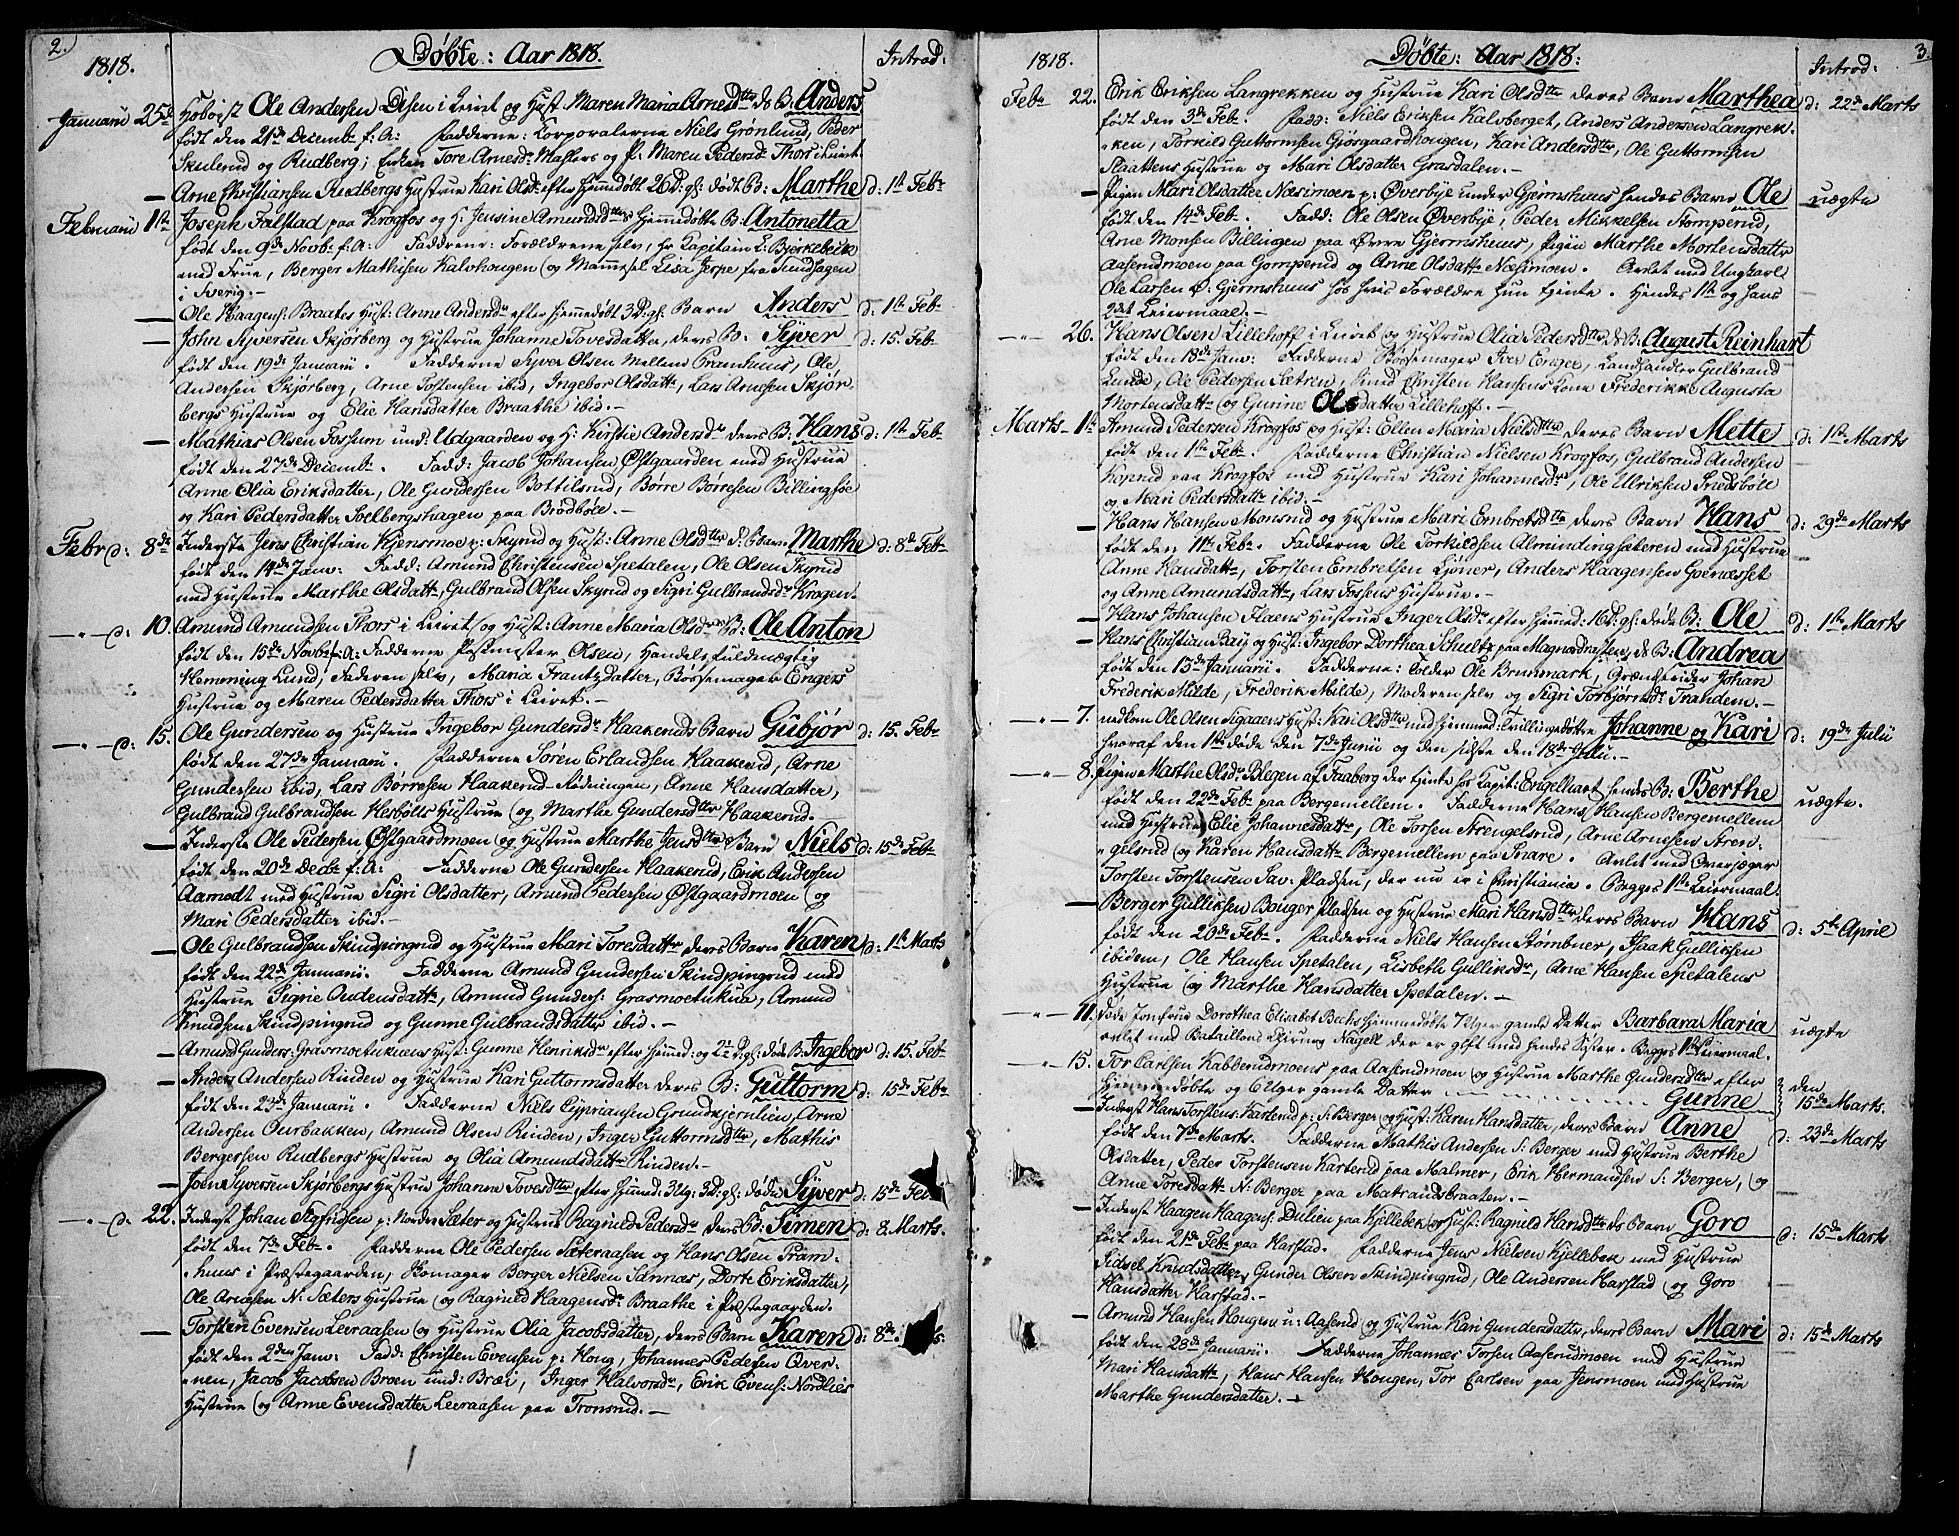 2.)
1818.
Döbte: Aar 1818.
Introd:
Januarii 25de Hoboist Ole Andersen Disen i Leiret og Hust: Maren Maria Arnesdttr ds B: Anders
født den 21de Decembr f: A: Fadderne: Korporalerne Niels Grønlund, Peder
Skulerud og Rudberg; Enken Tore Arnesdr Maslers og P: Maren Pedersdr Thors i Leiret.
— Arne Christiansen Rudbergs Hustrue Kari Olsdr efter Hjemmedøbt 26 D: gl: dødt B: Marthe d: 1ste Febr
Februarii 1ste Joseph Falstad paa Krogfos og H: Jensine Amundsdttrs Hjemmedøbte B: Antonetta
født den 9de Novbr f: A: Fadderne: Forældrene selv, hr Kapitain L: Bjerkebeck
med Frue, Berger Mathisen Kalvhougen og Mammesel Lisa Jerpe fra Sundhagen
i Sverig. —
— Ole Haagens: Braates Hust: Anne Andersdr efter Hjemmedøbt 3 D: gl: Barn Anders d: 1ste Febr
— John Syversen Skjørberg og Hustrue Johanne Tovesdatter, deres B: Syver d: 15. Feb.
født den 19de Januarii. Fadderne Syver Olsen Mellem Pramhuus, Ole
Andersen Skjørberg, Arne Torstensen ibid, Ingebor Olsdattr, Lars Arnesen Skjør-
bergs Hustrue og Elie Hansdatter Braathe ibid. —
— Mathias Olsen Fossum und: Udgaarden og H: Kirstie Andersdr deres B: Hans d: 1ste Febr
født den 27de Decembr. Fadd: Jacob Johansen Østgaarden med Hustrue
Anne Olia Eriksdatter, Ole Gundersen Bottilsrud, Børre Børresen Billingsøe
og Kari Pedersdatter Solbergshagen paa Brødbøll. —
Febr d: 8de Inderste Jens Christian Kjensmoe p: Skyrud og Hust: Anne Olsdttr d: Barn Marthe d: 8de Febr
født den 14de Janv: Fadd: Amund Christensen Spetalen, Ole Olsen Skyrud
med Hustrue Marthe Olsdattr, Gulbrand Olsen Skyrud og Sigri Gulbrandsdr Krogen.
—"— d: 10. Amund Amundsen Thors i Leiret og Hust: Anne Maria Olsdrs B: Ole Anton
født den 15de Novbr f: A: Fadderne Postmester Olsen, Handels fuldmægtig
Hemming Lund, Faderen selv, Maria Frantzdatter, Børsemager Engers
Hustrue og Maren Pedersdatter Thors i Leiret. —
—"— d: 15. Ole Gundersen og Hustrue Ingebor Gundersdr Haakeruds Barn Gubjør d: 15. Febr
født den 27de Januarii. Fadderne Søren Erlandsen Haakerud, Arne
Gundersen ibid, Lars Børresen Haakerud-Rødningen, Anne Hansdatter,
Gulbrand Gulbrandsen Hesbølts Hustrue og Marthe Gundersdttr Haakerud.
— Inderste Ole Pedersen Østgaardmoen og Hustrue Marthe Jensdttrs Barn Niels d: 15de Febr
født den 20de Decbr f: A: Fadderne Ole Gundersen Haakerud, Erik Andersen
Aamodt med Hustrue Sigri Olsdatter, Amund Pedersen Østgaardmoen og
Mari Pedersdatter ibid. —
— Ole Gulbrandsen Skindpingrud og Hustrue Mari Toresdattr deres Barn Karen d: 1ste Marts
født den 22de Januarii. Fadderne Amund Gundersen Skindpingrud med
Hustrue Sigrie Oudensdattr, Amund Gunders: Grasmoetukua, Amund
Knudsen Skindpingrud og Gunne Gulbrandsdatter ibid. —
— Amund Gunders: Grasmoetukuens Hust: Gunne Henriksdr efter Hjemmed: og 2 D: gl: døde B: Ingebor d: 15. Febr
— Anders Andersen Rinden og Hustrue Kari Guttormsdatter deres B: Guttorm d: 15de Febr
født den 23de Januarii. Fadderne Niels Cypriansen Grundtkjernlien, Arne
Andersen Ourbakken, Amund Olsen Rinden, Inger Guttormsdttr, Mathis
Bergersen Rudbergs Hustrue og Olia Amundsdattr Rinden. —
— John Syversen Skjørbergs Hustrue Johanne Tovesdttr efter Hjemmed: 3 Ug: 3 D: gl: døde Syver d: 15de Feb
—"— d: 22. Inderst Johan Sigfridsen p: Nordre Sæter og Hustrue Ragnild Pedersdr deres B: Simen d: 8. Marts.
født den 7de Febr. Fadderne Ole Pedersen Sæteraasen og Hans Olsen Pram-
huus i Præstegaarden, Skomager Berger Nielsen Sannæs, Dorte Eriksdatter,
Ole Arnesen N: Sæters Hustrue og Ragnild Haagensdr Braathe i Præstegaarden.
— Torsten Evensen Leeraasen og Hustrue Olia Jacobsdatter, deres Barn Karen d: 8de
født den 2den Janv: Fadd: Christen Evensen p: Houg, Johannes Pedersen Qver-
nen, Jacob Jacobsen Broen und: Bræi, Inger Halvorsdr, Erik Evens: Nordlies
Hustrue og Arne Evensdatter Leeraasen paa Tronsrud. —
3.
1818.
Döbte: Aar 1818:
Introd:
Febr 22. Erik Eriksen Langrekken og Hustrue Kari Olsdttr deres Barn Marthea d: 22de Marts
født den 3de Feb. Fadd: Niels Eriksen Kalvberget, Anders Andersen Langrek-
ken, Torkild Guttormsen Gjøsgaardhougen, Kari Andersdttr, Ole Guttormsen
Slaattens Hustrue og Mari Olsdatter Grasdalen. —
— Pigen Mari Olsdatter Næsimoen p: Øverbye under Gjermshuus hendes Barn Ole uægte
født den 14de Febr. Fadd: Ole Olsen Øverbye, Peder Mikkelsen Stomperud,
Arne Monsen Billingen paa Øvre Gjermshuus, Pigen Marthe Mortensdattr
Aaserudmoen paa Gomperud og Anne Olsdattr Næsimoen. Avlet med Ungkarl
Ole Larsen Ø: Gjermshuus hos hvis Forældre hun tjente. Hendes 1ste og hans
2det Leiermaal. —
—"— 26. Hans Olsen Lillehoff i Leiret og Hustrue Olia Pedersdttrs d: B: August Reinhart
født den 18de Janv: Fadderne Børsemager Iver Enger, Landhandler Gulbrand
Lunde, Ole Pedersen Sætren, Smed Christen Hansens Kone Frederikke Augusta
Mortensdattr og Gurine Olsdatter Lillehoff. —
Marts 1ste Amund Pedersen Krogfos og Hust: Ellen Maria Nielsdttrs deres Barn Mette d: 1ste Marts
født den 1ste Febr. Fadderne Christian Nielsen Krogfos, Gulbrand Andersen
Koperud paa Krogfos med Hustrue Kari Johannesdr, Ole Ulriksen Snedsböll
og Mari Pedersdattr ibid. —
— Hans Hansen Monsrud og Hustrue Mari Embretsdttr deres Barn Hans d: 29de Marts
født den 11te Febr. Fadderne Ole Torkildsen Almindingsæteren med Hustrue
Anne Hansdattr, Torsten Embretsen Ljöner, Anders Haagensen Goenæsset
og Anne Amundsdattr, Lars Fossens Hustrue. —
— Hans Johansen Flaens Hustrue Inger Olsdr efter Hjemmed: 16 D: gl: døde B: Ole d: 1ste Marts
— Hans Christian Bay og Hust: Ingebor Dorthea Schultz paa Magnordnæsten, ds B: Andrea
født den 13de Januarii. Fadderne: Tolder Ole Brunmark, Grændserider Johan
Frederik Milde, Frederik Milde, Moderen selv og Sigri Torbjørnsdr Trandem. —
—"— 7. nedkom Ole Olsen Sigaaens Hust: Kari Olsdttr med Hjemmed: Tvillingedøttre Johanne og Kari d: 19de Julii
hvoraf den 1ste døde den 7de Junii og den sidste den 18de Julii. —
—"— 8. Pigen Marthe Olsdr Blegen af Faaberg der tjente hos Kapit: Engelhart hendes B: Berthe uægte.
født den 22de Feb. paa Bergemellem. Fadderne Hans Hansen Bergemellem
med Hustrue Elie Johannesdattr, Ole Torsen Strengelsrud, Arne Arnesen Stren-
gelsrud og Karen Hansdattr Bergemellem paa Snare. Avlet med Overjæger
Torsten Torstensen Sav-Pladsen, der nu er i Christiania. Begges 1ste Leiermaal.
— Berger Gulliksen Bouger Pladsen og Hustrue Mari Hansdttr deres Barn Hans d: 5te April
født den 20de Febr. Fadderne Niels Hansen Størnbner, Isaak Gulliksen
ibidem, Ole Hansen Spetalen, Lisbeth Gulliksdr, Arne Hansen Spetalens
Hustrue og Marthe Hansdatter Spetalen. —
—"— 11. Døde Jomfrue Dorothea Elisabet Bechs Hjemmedøbte 7 Uger gamle Datter Barbara Maria uægte
avlet med Bataillons Chirurg Nagell der er gift med hendes Søster. Begges 1ste Leiermaal.
—"— 15. Tor Carlsen Kabberudmoens paa Aaserudmoen og Hustrue Marthe Gundersdttr efter
Hjemmedøbte og 6 Uger gamle Datter Gunne den 15de Marts.
— Inderst Hans Torstens: Karterud p: S: Berger og Hust: Karen Hansdatter, deres Barn Anne d: 23de Marts
født den 7de Marts. Fadderne Mathis Andersen S: Berger med Hustrue Berthe
Olsdatter, Peder Torstensen Karterud paa Malmer, Erik Hermandsen S: Berger, og
Anne Toresdatter N: Berger paa Matrandsbraaten. —
— Inderst Haagen Haagens: Dulien paa Kjellebek og Hust: Ragnild Hansdttr ds Barn Goro d: 15de Marts
født den 21de Febr paa Harstad. Fadderne Jens Nielsen Kjellebek med Hustrue
Sidsel Knudsdatter, Gunder Olsen Skindpingrud, Ole Andersen Harstad og Goro
Hansdatter Harstad. —
— Amund Hansen Hougen u: Aaserud og Hustrue Kari Gundersdatter, deres Barn Mari d: 15de Marts
født den 28de Januarii. Fadderne Johannes Torsen Aaserudmoen med Hustrue
Mari Hansdattr, Hans Hansen Hougen, Tor Carlsen paa Jensmoen med Hustrue
Marthe Gundersdatter. —